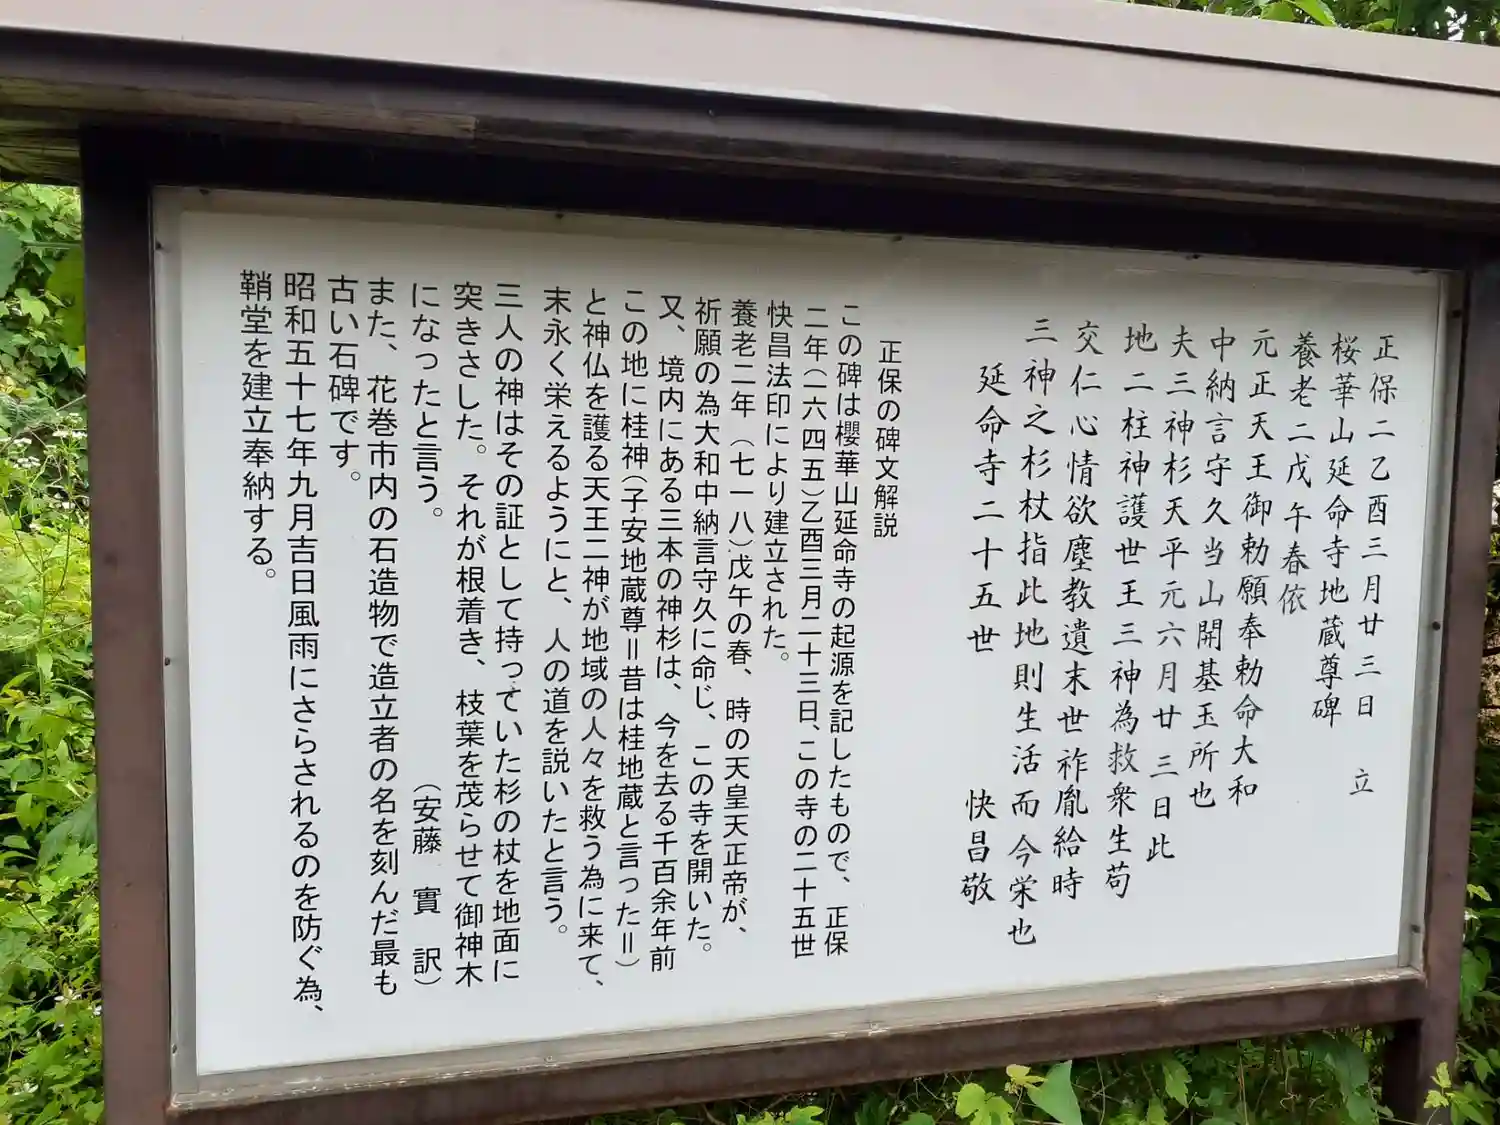 正保二乙酉三月廿三日　立
桜華山延命寺地蔵尊碑
養老二戊午春依
元正天王御勅願奉勅命大和
中納言守久当山開基玉所也
夫三神杉天平元六月廿三日此
地二柱神護世王三神為救衆生苟
交仁心情欲塵教遺末世祚胤給時
三神之杉杖指此地則生活而今栄也
延命寺二十五世　快昌敬
正保の碑文解説
この碑は櫻華山延命寺の起源を記したもので、正保
二年(一六四五)乙酉三月二十三日、この寺の二十五世
快昌法印により建立された。
養老二年(七一八)戊午の春、時の天皇天正帝が、
祈願の為大和中納言守久に命じ、この寺を開いた。
又、境内にある三本の神杉は、今を去る千百余年前
この地に桂神(子安地蔵尊＝昔は桂地蔵と言った＝)
と神仏を護る天王二神が地域の人々を救う為に来て、
末永く栄えるようにと、人の道を説いたと言う。
三人の神はその証として持っていた杉の杖を地面に
突きさした。それが根着き、枝葉を茂らせて御神木
になったと言う。　(安藤　實　訳)
また、花巻市内の石造物で造立者の名を刻んだ最も
古い石碑です。
昭和五十七年九月吉日風雨にさらされるのを防ぐ為、
鞘堂を建立奉納する。